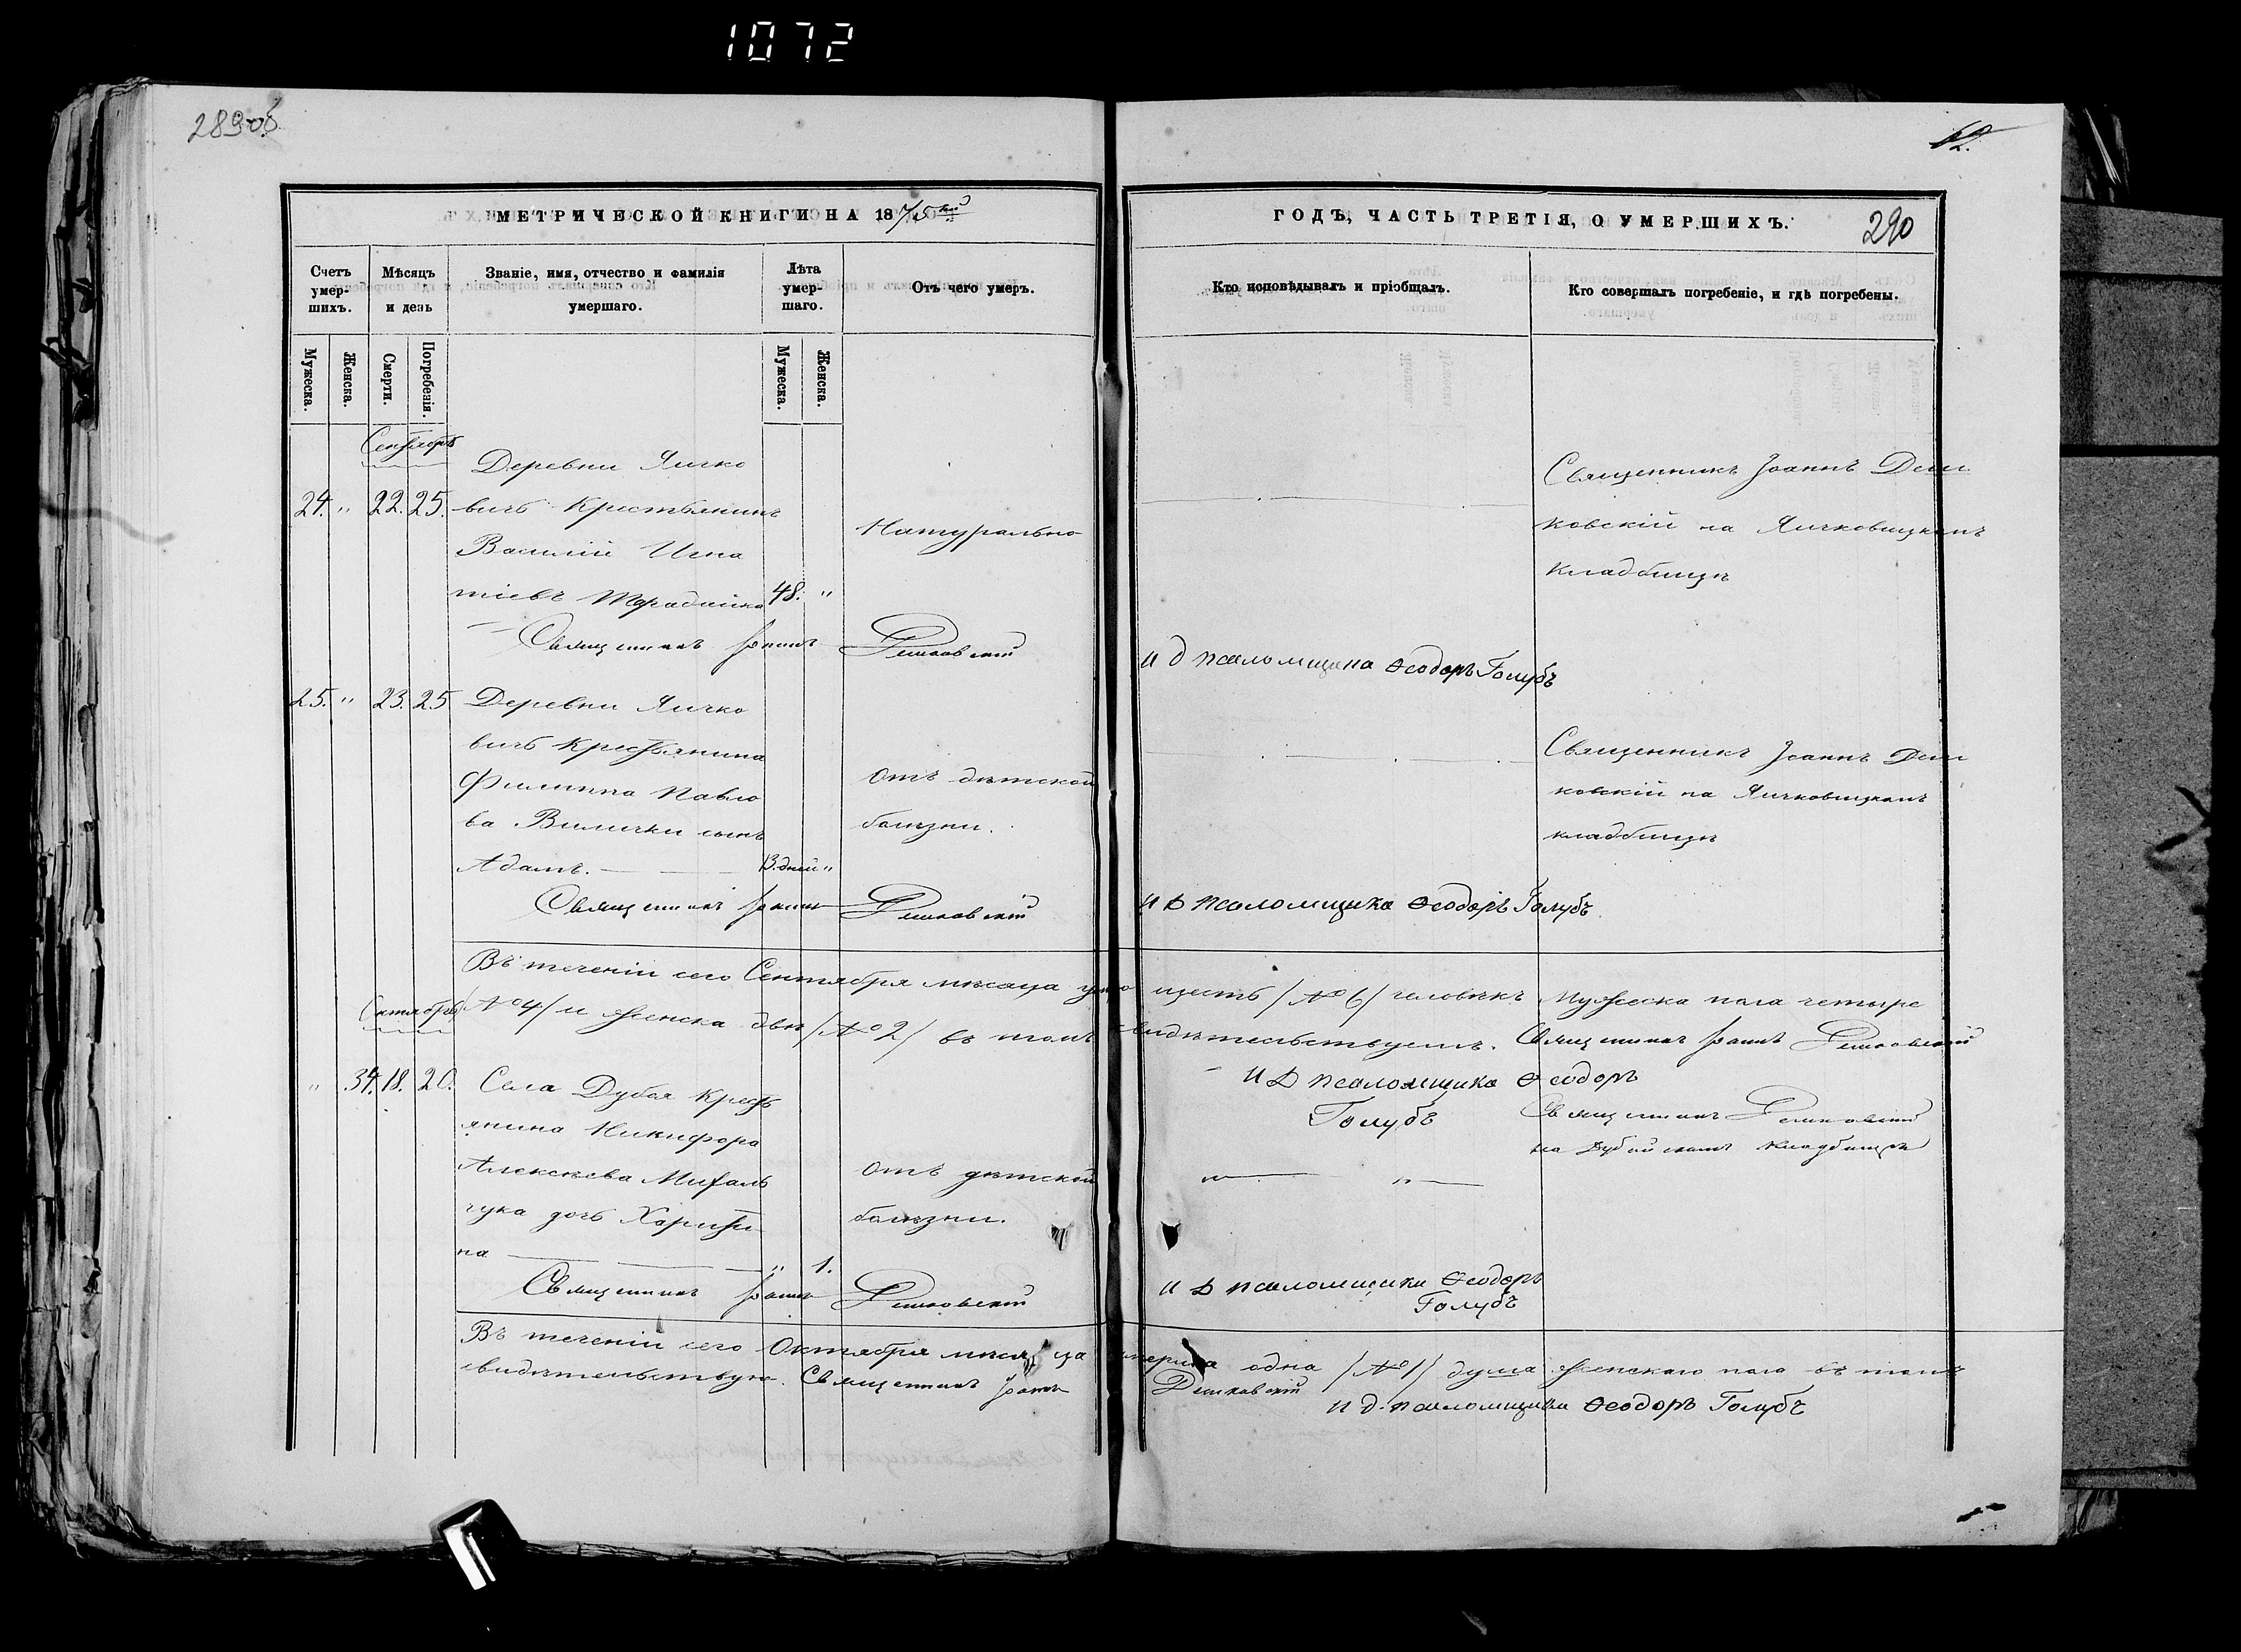 1072
289об.
62.
МЕТРИЧЕСКОЙ КНИГИ НА 1875ый
ГОДЪ, ЧАСТЬ ТРЕТІЯ, О УМЕРШИХЪ.
290
Счетъ умер-шихъ.
Мужеска.
Женска.
Мѣсяцъ и день
Смерти.
Погребенія.
Званіе, имя, отчество и фамилія умершаго.
Лѣта умер-шаго.
Мужеска.
Женска.
Отъ чего умеръ.
Кто исповѣдывалъ и пріобщалъ.
Кто совершалъ погребеніе, и гдѣ погребены.
Сентябрь
Деревни Яичко
24. " 22. 25. вичъ Крестьянинъ
Василій Игна
тіевъ 48. "
Натурально
Священникъ Іоаннъ Деш
ковскій на Яичковицкомъ
кладбищѣ
Священникъ Іоаннъ Дешковскій
И д псаломщика Ѳеодоръ Голубъ
25. " 23. 25 Деревни Яичко
вичъ Крестьянина
Филиппа Павло
ва Велички сынъ
Адамъ. 13. дней "
отъ дѣтской
болѣзни.
Священникъ Іоаннъ Деш
ковскій на Яичковицкомъ
кладбищѣ
Священникъ Іоаннъ Дешковскій
И Д псаломщика Ѳеодоръ Голубъ
Въ теченіи сего Сентября мѣсяца умро шесть /№ 6/ человѣкъ Мужеска пола четыре
/№ 4/ и женска двѣ /№ 2/ въ томъ свидѣтельствуемъ. Священникъ Іоаннъ Дешковскій
И Д псаломщика Ѳеодоръ
Голубъ
Октябрь
" 34. 18. 20. Села Дубая Кресть
янина Никифора
Алексѣева Михаль
чука дочь Харити
на " 1.
отъ дѣтской
болѣзни.
Священникъ Дешковскій
на Дубойскомъ кладбищѣ
Священникъ Іоаннъ Дешковскій
И Д псаломщика Ѳеодоръ
Голубъ
Въ теченіи сего Октября мѣсяца умерла одна /№ 1/ душа женскаго пола въ томъ
свидѣтельствую. Священникъ Іоаннъ Дешковскій
И д. псаломщика Ѳеодоръ Голубъ